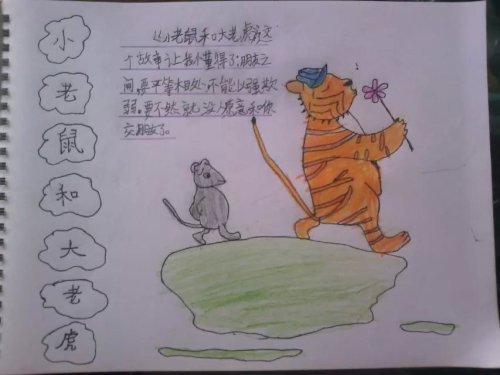 小
老
鼠
和
大
老
虎
《小老鼠和大老虎》这
个故事让我懂得了朋友之
间要平等相处,不能以强欺
弱。要不然就没人愿意和你
交朋友了。